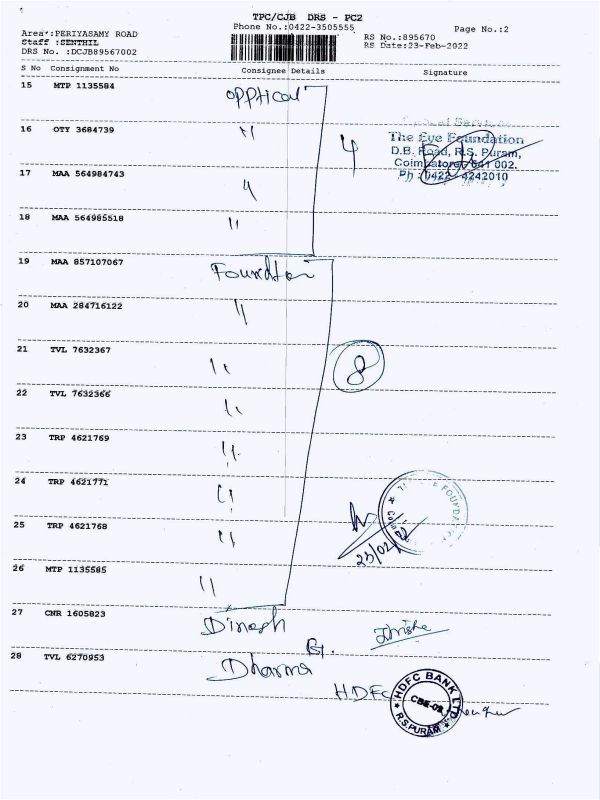 TPC/CJB DRS - PC2
Phone No.:0422-3505555
Page No.:2
Area :PERIYASAMY ROAD
Staff :SENTHIL
DRS No. :DCJB89567002
RS No.:895670
RS Date:23-Feb-2022
S No Consignment No Consignee Details Signature
15 MTP 1135584 Opptical
16 OTY 3684739 "
4
The Eye Foundation
D.B. Road, R.S. Puram,
Coimbatore - 641 002.
Ph : 0422 - 4242010
17 MAA 564984743 "
18 MAA 564985518 "
19 MAA 857107067 Foundation
20 MAA 284716122 "
21 TVL 7632367 "
8
22 TVL 7632366 "
23 TRP 4621769 "
24 TRP 4621771 "
25 TRP 4621768 "
23/02/22
26 MTP 1135585 "
27 CNR 1605823 Dinesh
28 TVL 6270953 Dharma
HDFC
HDFC BANK LTD.
CBE-02
R.S.PURAM